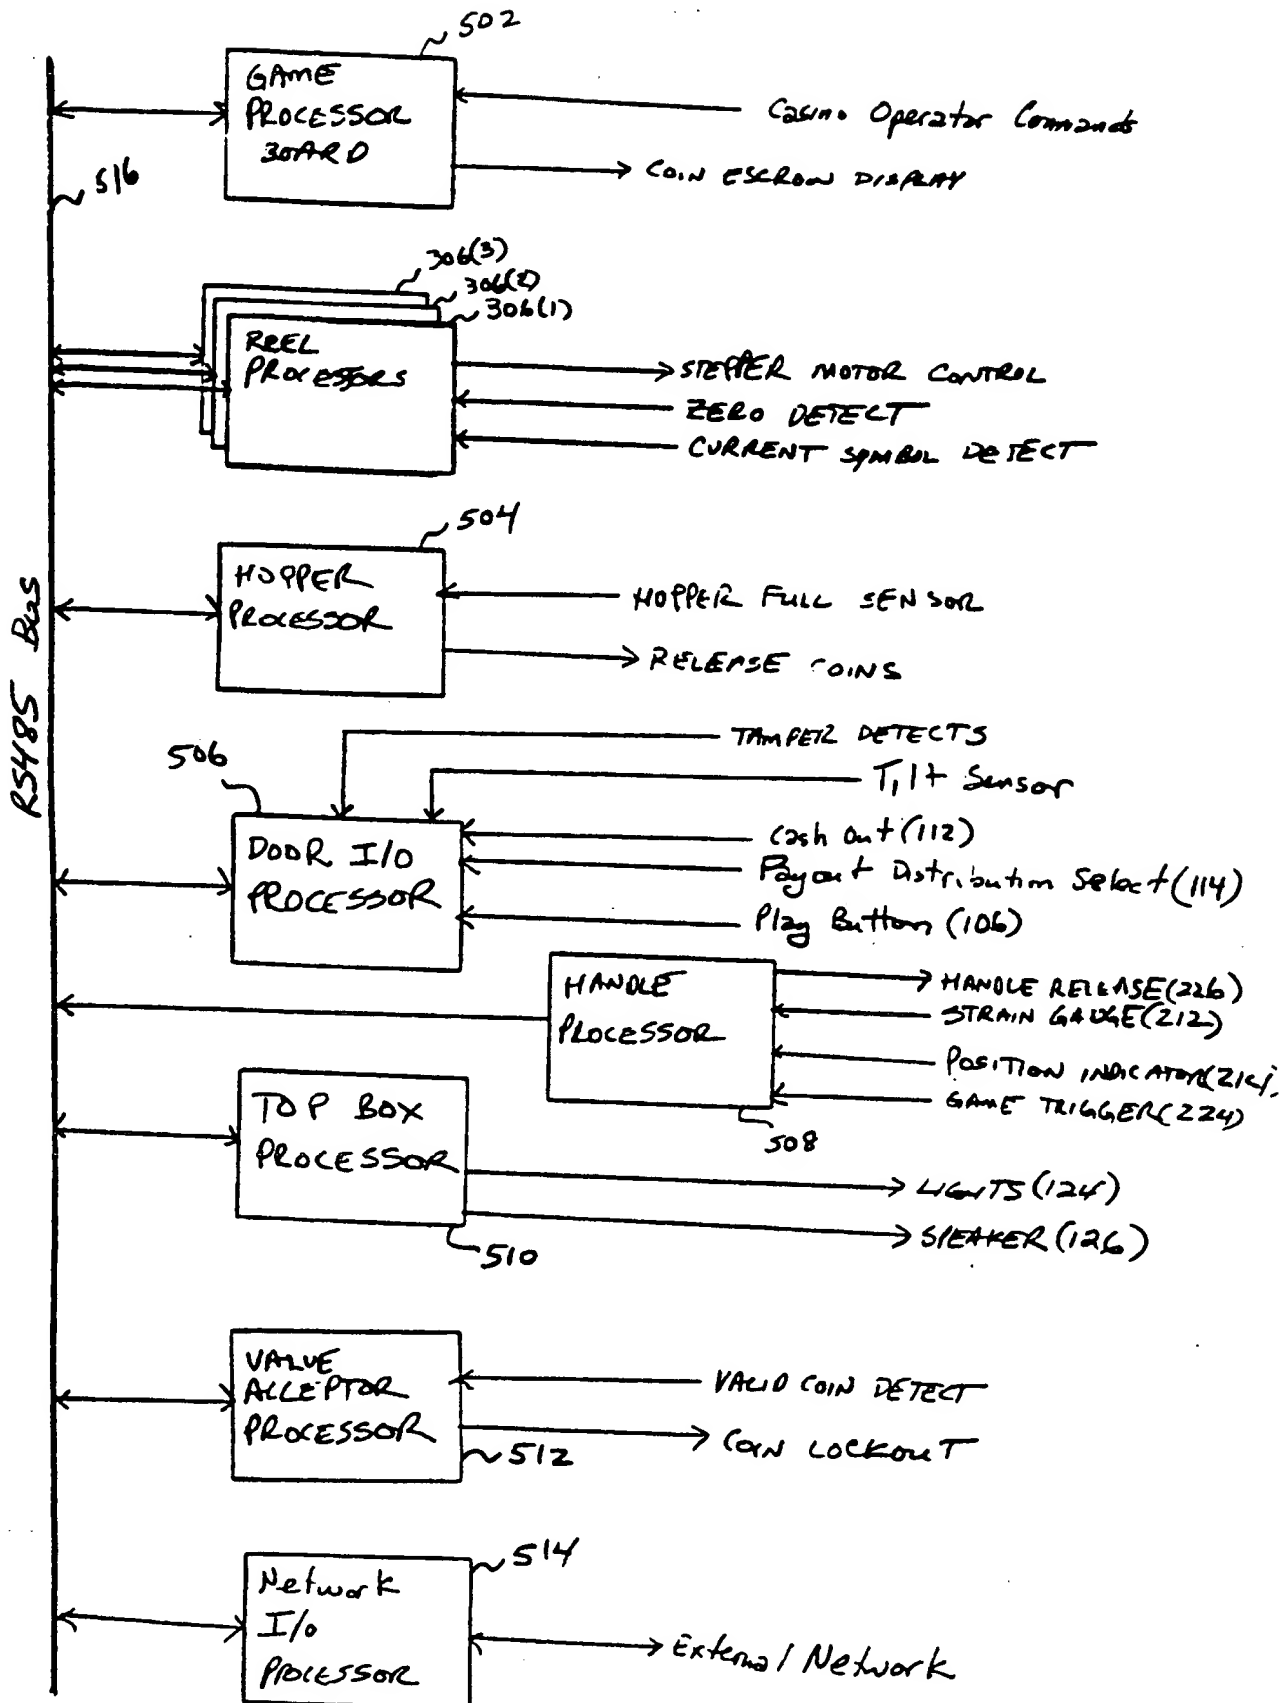 502
GAME
PROCESSOR
BOARD
Casino Operator Commands
COIN ESCROW DISPLAY
516
306(3)
306(2)
306(1)
REEL
PROCESSORS
STEPPER MOTOR CONTROL
ZERO DETECT
CURRENT SYMBOL DETECT
504
HOPPER
PROCESSOR
HOPPER FULL SENSOR
RELEASE COINS
RS485 Bus
TAMPER DETECTS
506
Tilt Sensor
DOOR I/O
PROCESSOR
Cash Out (112)
Payout Distribution Select (114)
Play Button (106)
HANDLE
PROCESSOR
HANDLE RELEASE (226)
STRAIN GAUGE (212)
POSITION INDICATOR (214)
GAME TRIGGER (224)
508
TOP BOX
PROCESSOR
LIGHTS (124)
SPEAKER (126)
510
VALUE
ACCEPTOR
PROCESSOR
VALID COIN DETECT
COIN LOCKOUT
512
514
Network
I/O
PROCESSOR
External Network